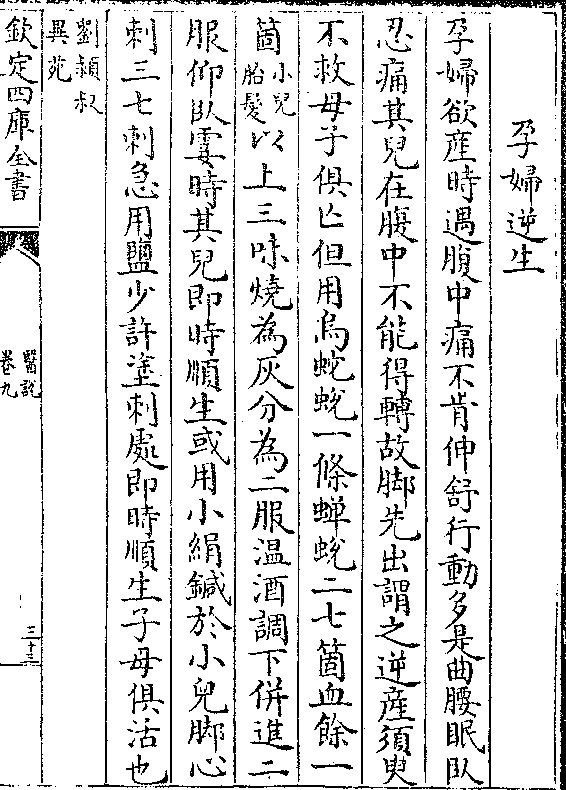 孕婦逆生
孕婦欲産時遇腹中痛不肯伸舒行動多是曲腰眠臥
忍痛其兒在腹中不能得轉故脚先出謂之逆産須臾
不救母子俱亡但用烏蛇蛻一條蟬蛻二七箇血餘一
箇小兒胎髮以上三味燒為灰分為二服温酒調下併進二
服仰臥霎時其兒即時順生或用小絹鍼於小兒脚心
刺三七刺急用鹽少許塗刺處即時順生子母俱活也
劉穎叔
異苑
欽定四庫全書
醫説
卷九
三十三